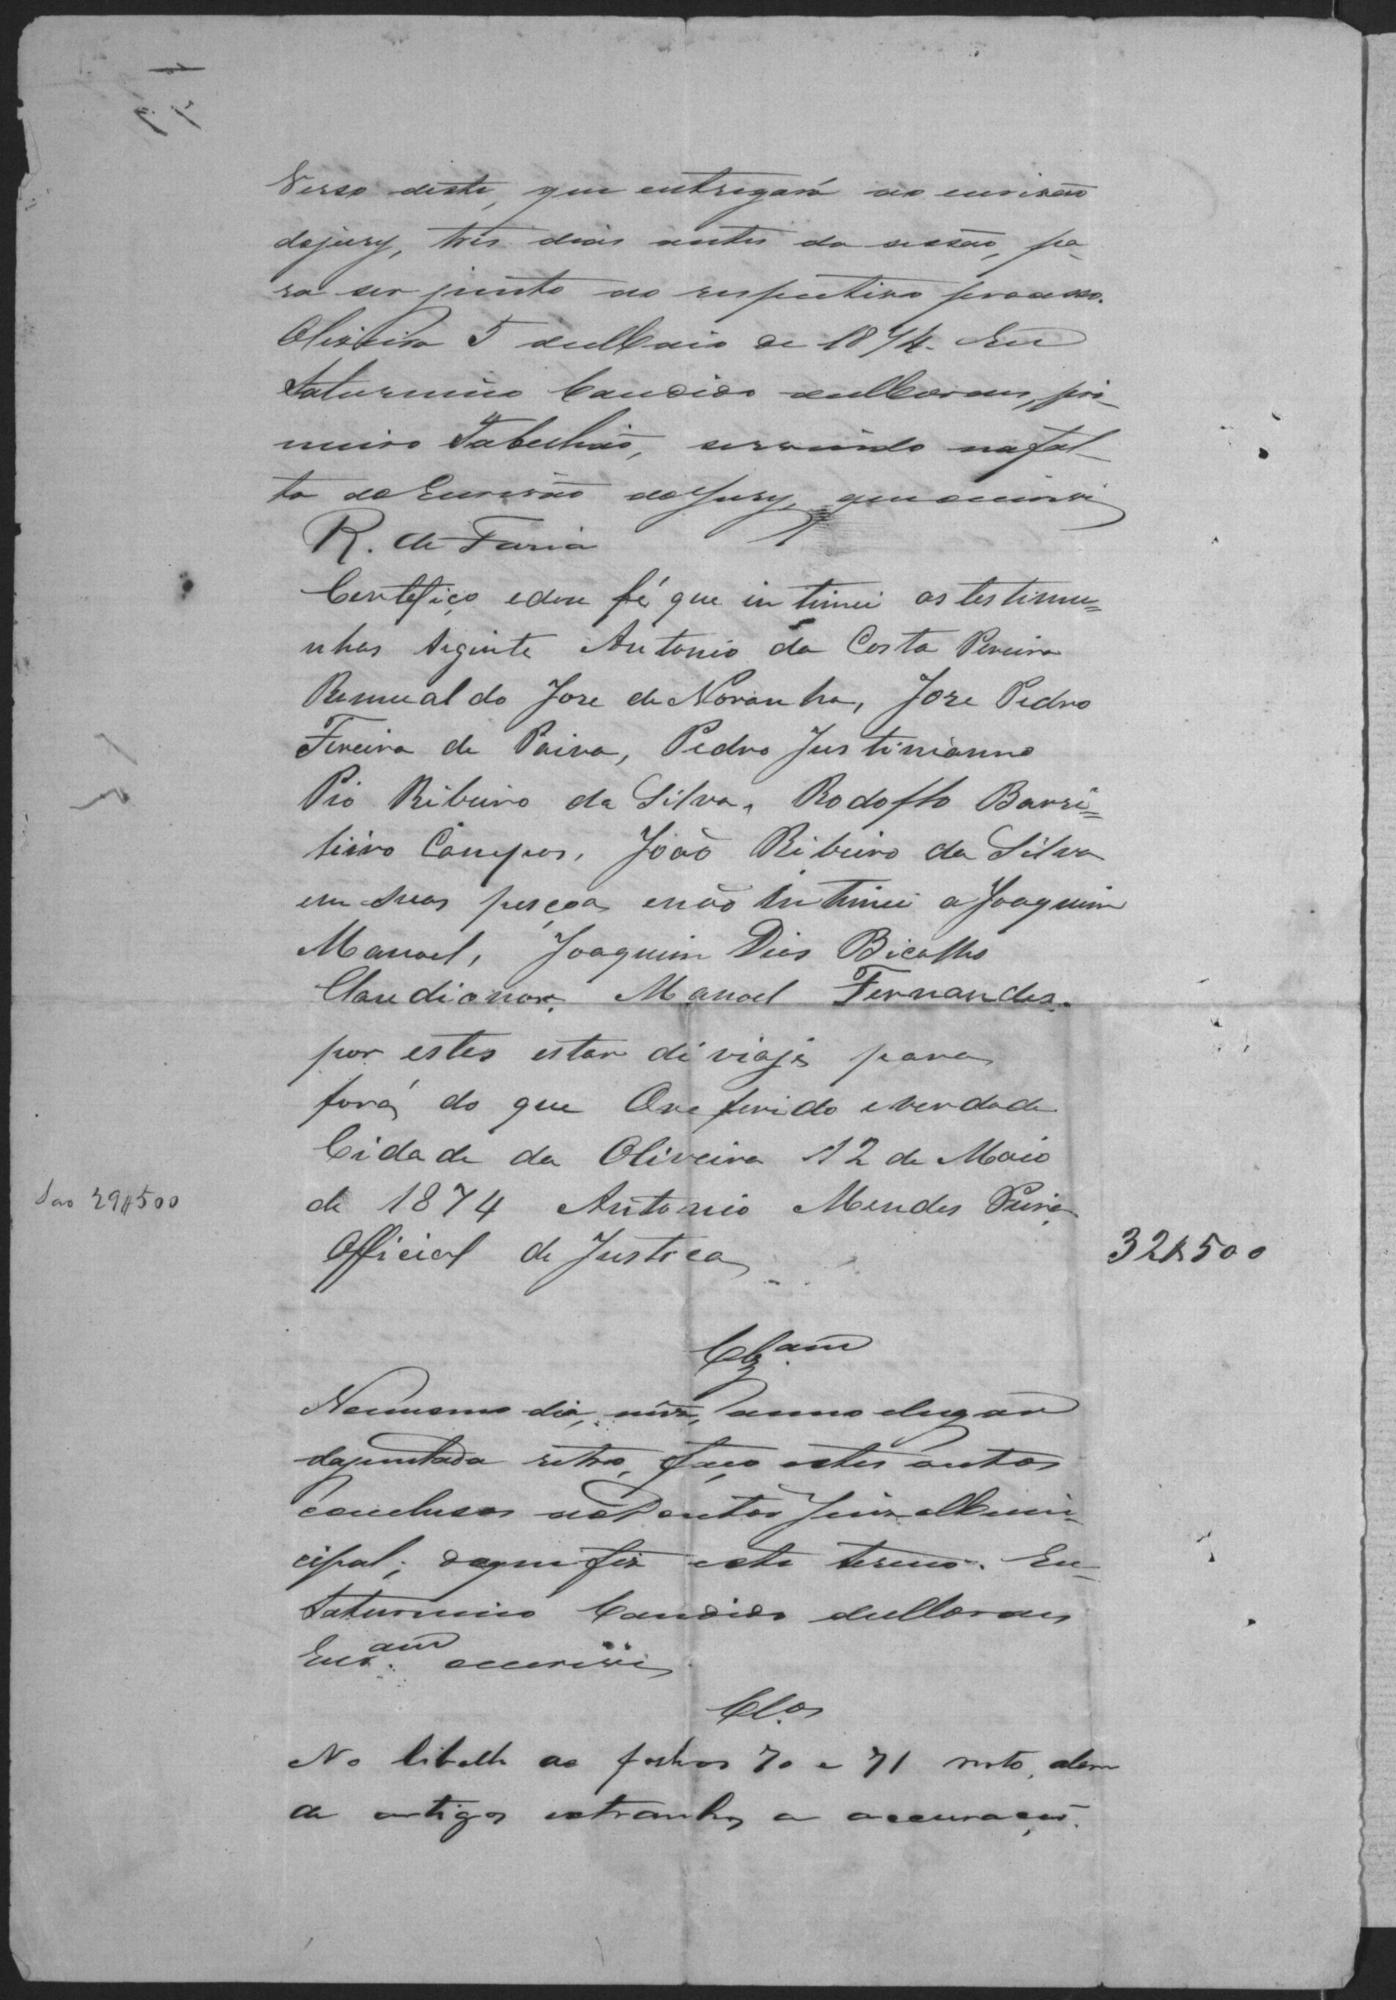 Verso deste, que entregará ao escrivão
do jury, tres dias antes da sessão, pa-
ra ser junto ao respectivo processo.
Oliveira 5 de Maio de 1874. Eu
Saturnino Candido de Moraes, pri-
meiro Tabellião, servindo na fal-
ta do Escrivão do Jury, que escrevi
R. de Faria
Certefiço e dou fé que intimei as testimu=
nhas seginte Antonio da Costa Pereira
Romualdo Jose de Noronha, Jose Pedro
Fereira de Paiva, Pedro Justinianno
Pio Ribeiro da Silva, Rodolfho Barri=
teiro Campos, João Ribeiro da Silva
em suas peçoa, e não intimei a Joaquim
Manoel, Joaquim Dias Bicalho
Claudionor, Manoel Fernandes.
por estes estar di viaje para
fora, do que O referido e verdade
Cidade da Oliveira 12 de Maio
de 1874 Antonio Mendes
Official de Justica
São 29$500
32$500
Clzam
No mesmo dia, mez, anno e lugar
da juntada retro, faço estes autos
conclusos ao Doutor Juiz Muni-
cipal; do que fiz este termo. Eu
Saturnino Candido de Moraes
Escram escrevi
Cl.os
No libello as folhas 70 e 71 noto, alem
de artigos estranhos a accusação.